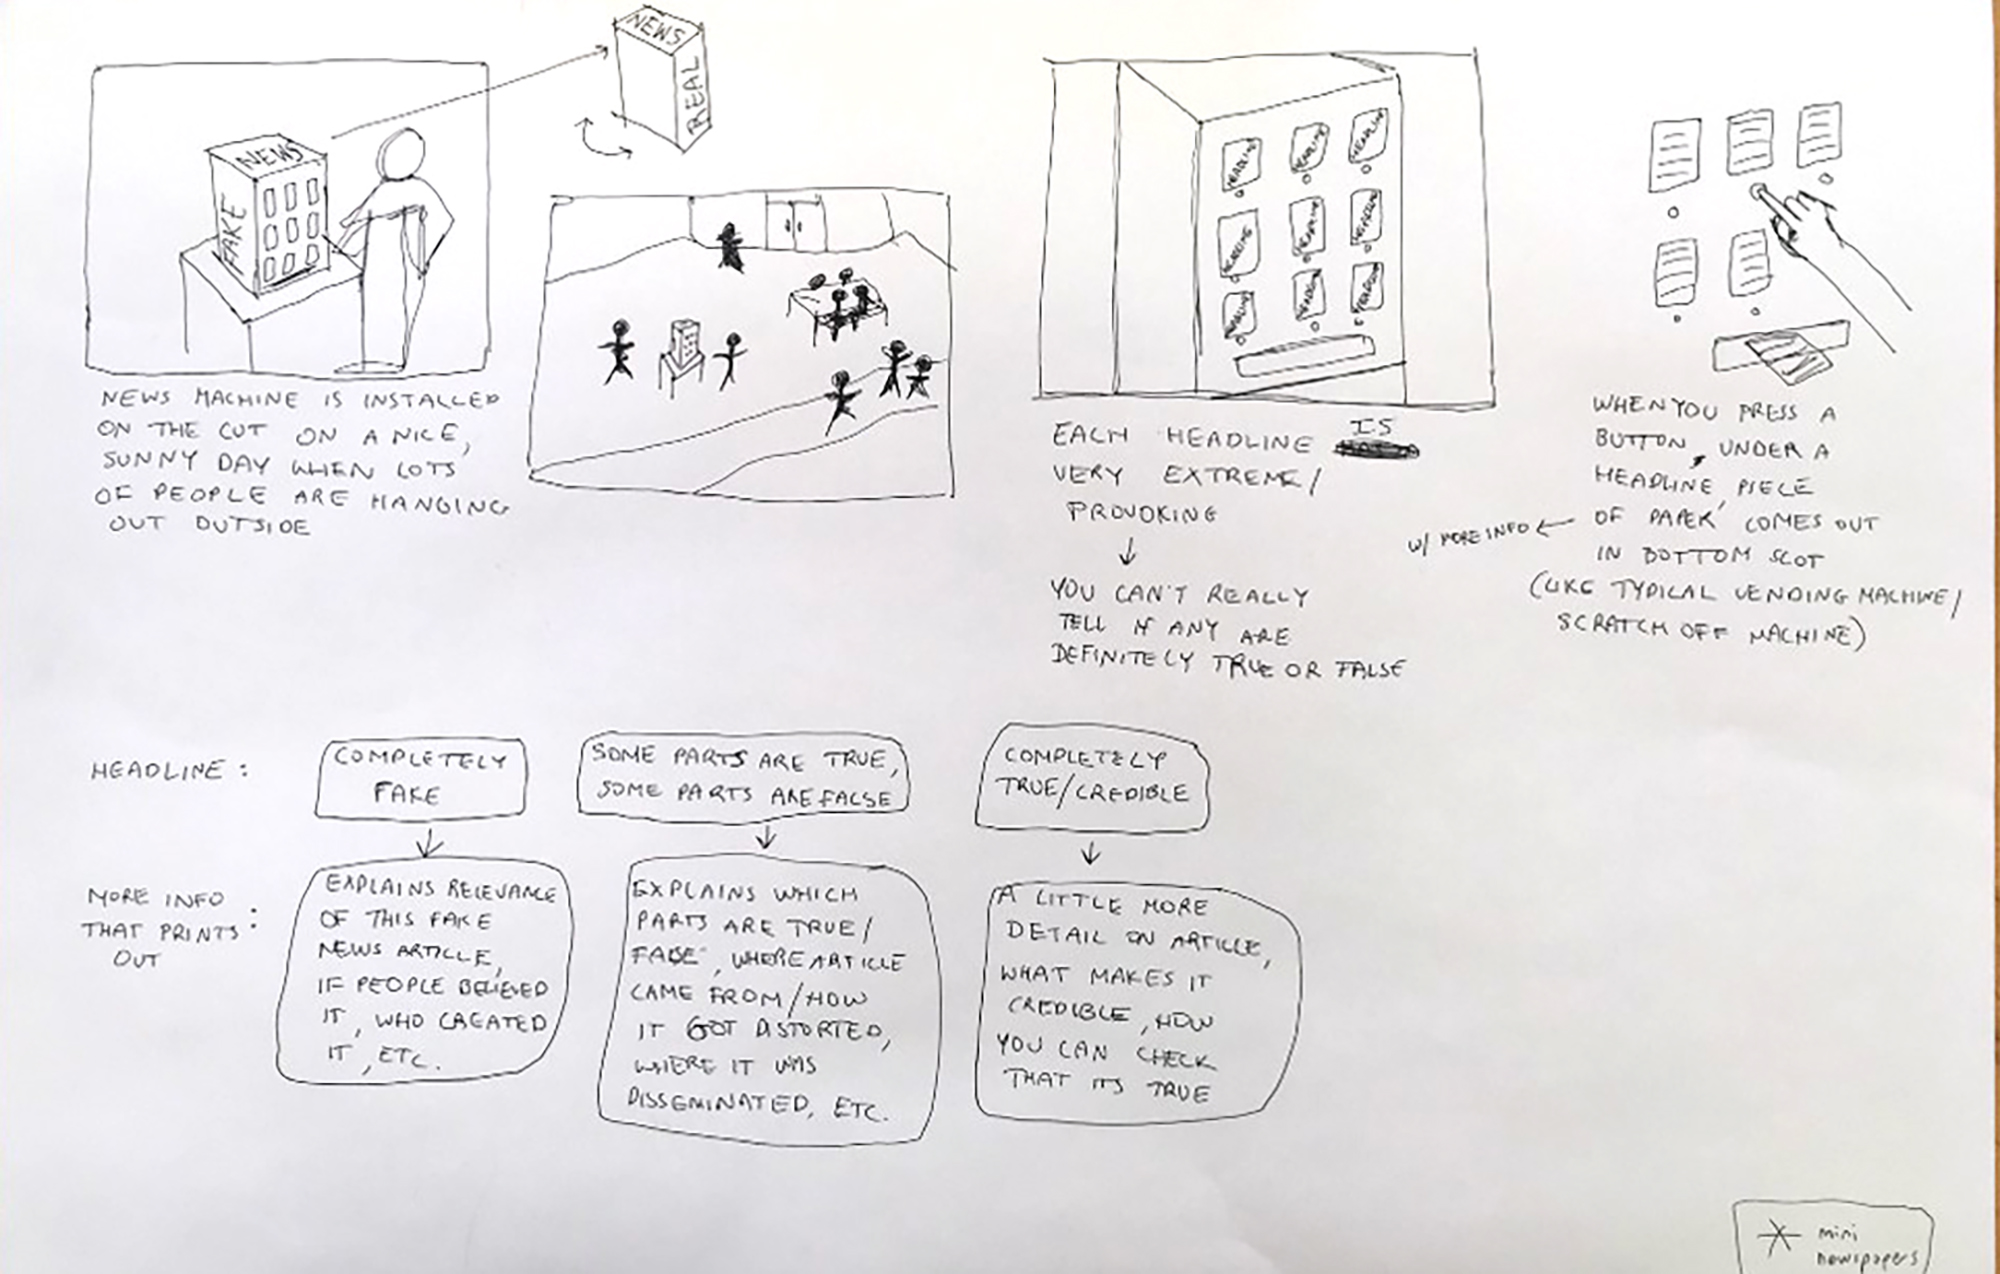 NEWS
REAL
NEWS
FAKE
NEWS MACHINE IS INSTALLED
ON THE CUT ON A NICE,
SUNNY DAY WHEN LOTS
OF PEOPLE ARE HANGING
OUT OUTSIDE
HEADLINE HEADLINE HEADLINE
HEADLINE HEADLINE HEADLINE
HEADLINE HEADLINE HEADLINE
EACH HEADLINE IS
VERY EXTREME/
PROVOKING
YOU CAN'T REALLY
TELL IF ANY ARE
DEFINITELY TRUE OR FALSE
WHEN YOU PRESS A
BUTTON, UNDER A
HEADLINE, PIECE
OF PAPER COMES OUT
W/ MORE INFO
IN BOTTOM SLOT
(LIKE TYPICAL VENDING MACHINE/
SCRATCH OFF MACHINE)
HEADLINE:
COMPLETELY
FAKE
SOME PARTS ARE TRUE,
SOME PARTS ARE FALSE
COMPLETELY
TRUE/CREDIBLE
MORE INFO
THAT PRINTS:
OUT
EXPLAINS RELEVANCE
OF THIS FAKE
NEWS ARTICLE,
IF PEOPLE BELIEVED
IT, WHO CREATED
IT, ETC.
EXPLAINS WHICH
PARTS ARE TRUE/
FALSE, WHERE ARTICLE
CAME FROM/HOW
IT GOT DISTORTED,
WHERE IT WAS
DISSEMINATED, ETC.
A LITTLE MORE
DETAIL ON ARTICLE,
WHAT MAKES IT
CREDIBLE, HOW
YOU CAN CHECK
THAT ITS TRUE
* mini
newspapers